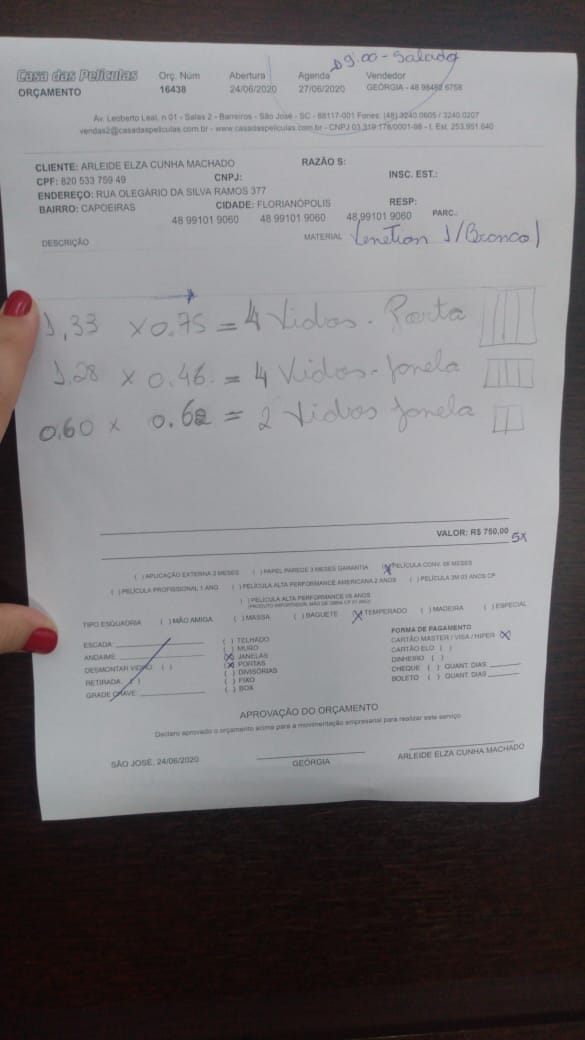 09:00 - Sabado
Casa das Películas Orç. Núm Abertura Agenda Vendedor
ORÇAMENTO 16438 24/06/2020 27/06/2020 GEÓRGIA - 48 98462 6758
Av. Leoberto Leal, n 01 - Salas 2 - Barreiros - São José - SC - 88117-001 Fones: (48) 3240.0605 / 3240.0207
vendas2@casadaspeliculas.com.br - www.casadaspeliculas.com.br - CNPJ 03.319.176/0001-98 - I. Est. 253.951.640
CLIENTE: ARLEIDE ELZA CUNHA MACHADO RAZÃO S:
CPF: 820 533 759 49 CNPJ: INSC. EST.:
ENDEREÇO: RUA OLEGÁRIO DA SILVA RAMOS 377
BAIRRO: CAPOEIRAS CIDADE: FLORIANÓPOLIS RESP:
48 99101 9060 48 99101 9060 48 99101 9060 PARC.:
DESCRIÇÃO MATERIAL Venetian 1/Branco)
1,33 x 0.75 = 4 Vidros - Porta
1.28 x 0.46 = 4 Vidros - Janela
0.60 x 0.62 = 2 Vidros Janela
VALOR: R$ 750,00 5x
( ) APLICAÇÃO EXTERNA 3 MESES ( ) PAPEL PAREDE 3 MESES GARANTIA (X) PELÍCULA CONV. 06 MESES
( ) PELÍCULA PROFISSIONAL 1 ANO ( ) PELÍCULA ALTA PERFORMANCE AMERICANA 2 ANOS ( ) PELÍCULA 3M 03 ANOS CP
( ) PELÍCULA ALTA PERFORMANCE 05 ANOS
TIPO ESQUADRIA ( ) MÃO AMIGA ( ) MASSA ( ) BAGUETE (X) TEMPERADO ( ) MADEIRA ( ) ESPECIAL
ESCADA: ( ) TELHADO FORMA DE PAGAMENTO
ANDAIME: ( ) MURO CARTÃO MASTER / VISA / HIPER (X)
DESMONTAR VIDRO ( ) (X) JANELAS CARTÃO ELO ( )
RETIRADA: ( ) (X) PORTAS DINHEIRO ( )
GRADE CHAVE: ( ) DIVISÓRIAS CHEQUE ( ) QUANT. DIAS:
( ) FIXO BOLETO ( ) QUANT. DIAS
( ) BOX
APROVAÇÃO DO ORÇAMENTO
Declaro aprovado o orçamento acima para a movimentação empresarial para realizar este serviço
SÃO JOSÉ, 24/06/2020 GEÓRGIA ARLEIDE ELZA CUNHA MACHADO